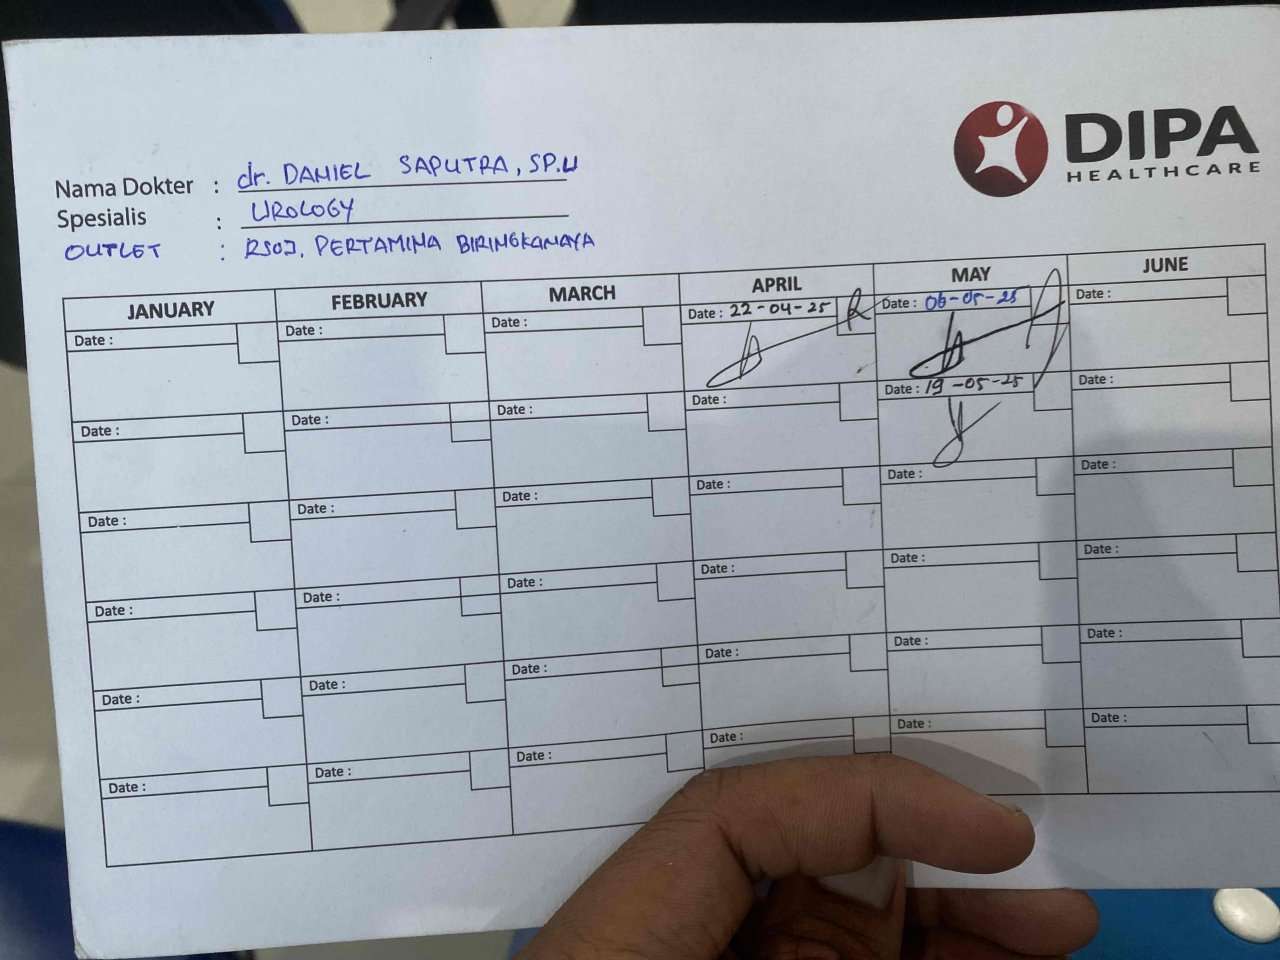 DIPA
HEALTHCARE
Nama Dokter : dr. DANIEL SAPUTRA, SP.U
Spesialis : UROLOGY
OUTLET : RSOJ. PERTAMINA BIRINGKANAYA
JANUARY FEBRUARY MARCH APRIL MAY JUNE
Date : Date : Date : Date : 22-04-25 Date : 06-05-25 Date :
Date : Date : Date : Date : Date : 19-05-25 Date :
Date : Date : Date : Date : Date : Date :
Date : Date : Date : Date : Date : Date :
Date : Date : Date : Date : Date : Date :
Date : Date : Date : Date : Date : Date :